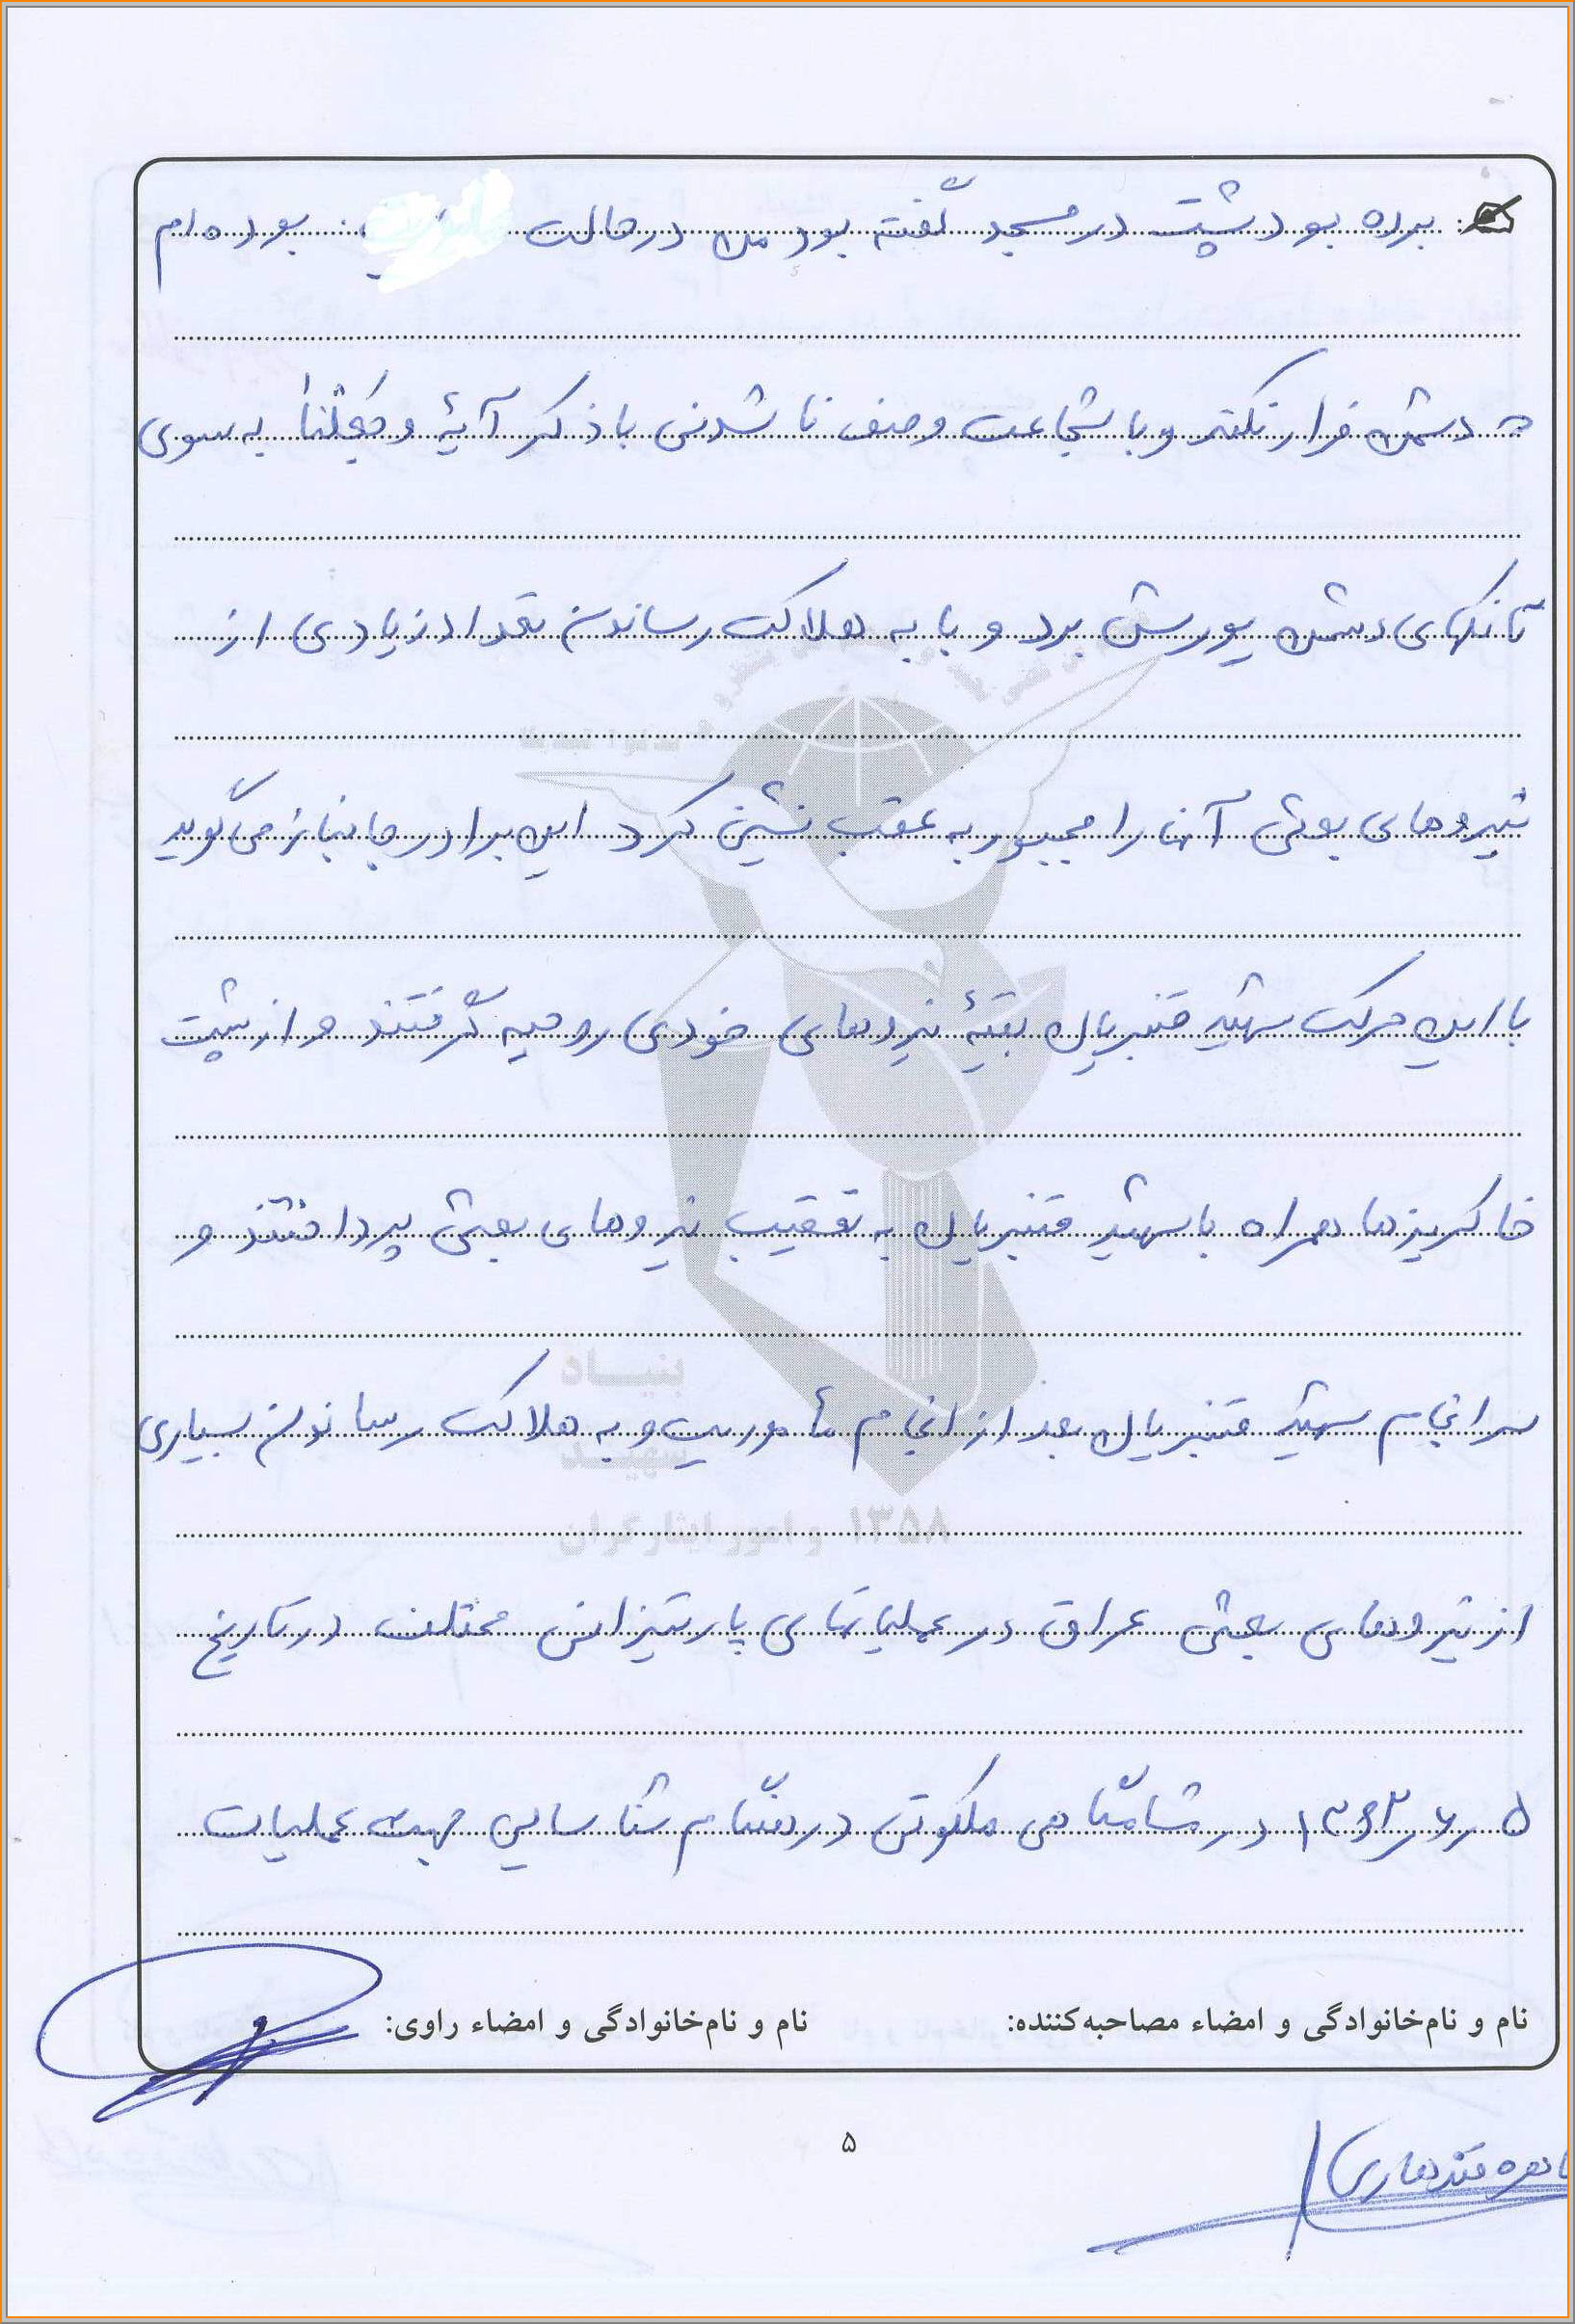 برده بود شبت در مسجد گفته بود من در حالت بوده‌ام
دشمن فرار نکند و با شجاعت وصف ناشدنی با ذکر آیهٔ وجعلنا به سوی
تانکهای دشمن یورش برد و با به هلاکت رساندن تعداد زیادی از
نیروهای بعثی آنها را مجبور به عقب نشینی کرد این برادر جانباز می‌گوید
با این حرکت شهید قنبر یال بقیهٔ نیروهای خودی روحیه گرفتند و از پشت
خاکریزها همراه با شهید قنبر یال به تعقیب نیروهای بعثی پرداختند و
سرانجام شهید قنبر یال بعد از انجام مأموریت و به هلاکت رساندن بسیاری
از نیروهای بعثی عراق در عملیاتهای پارتیزانی مختلف در تاریخ
۱۳۶۳ر۶ر۵ در شامگاهی ملکوتی در هنگام شناسایی جهت عملیات
نام و نام‌خانوادگی و امضاء مصاحبه‌کننده: نام و نام‌خانوادگی و امضاء راوی:
۵
قندهاری
بنیاد
شهید
۱۳۵۸ و امور ایثارگران